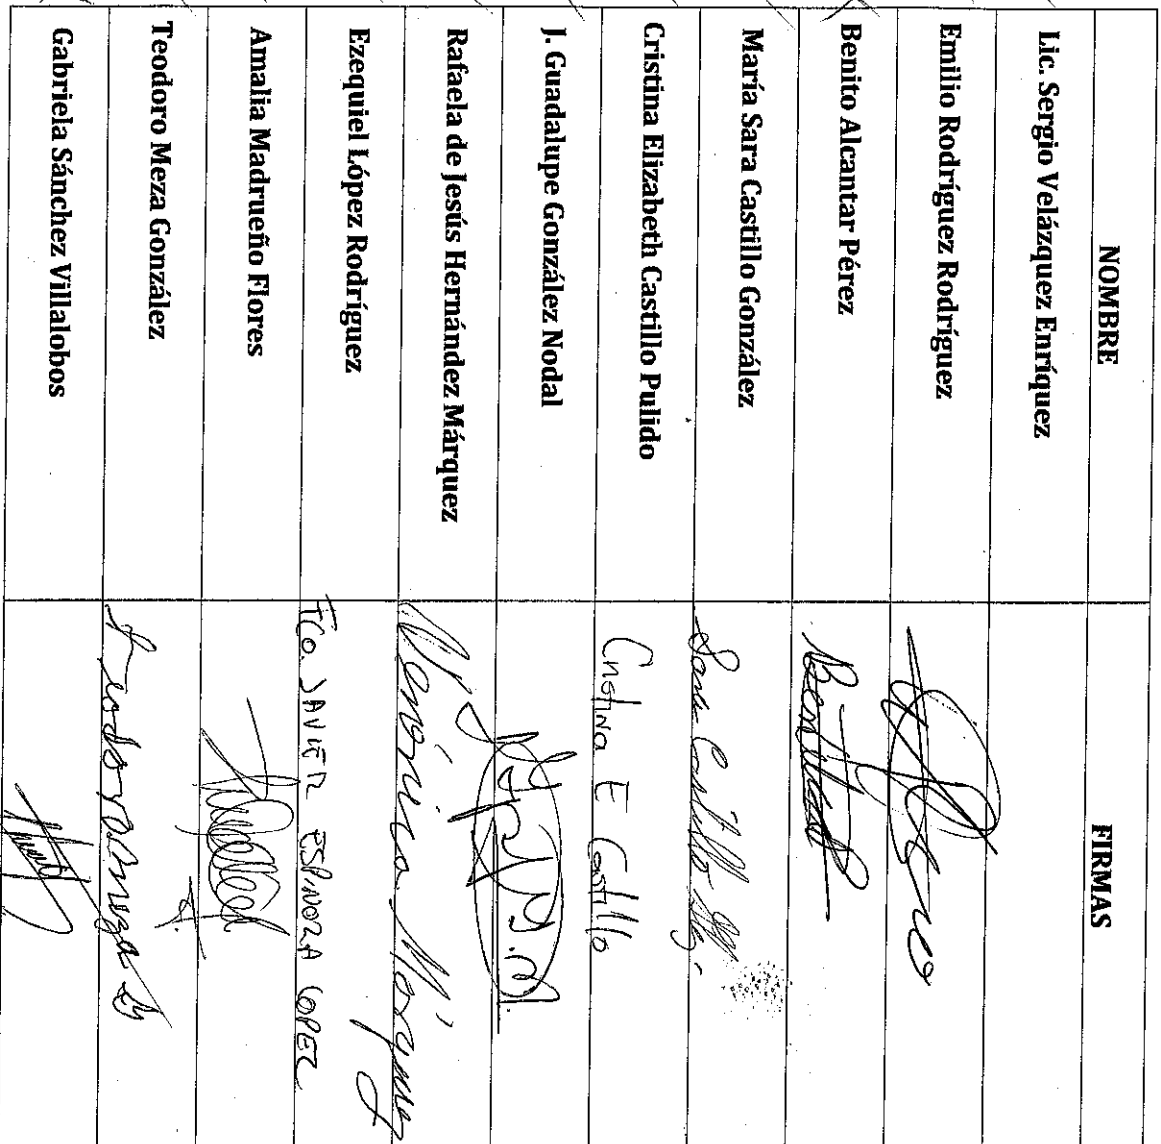 NOMBRE FIRMAS
Lic. Sergio Velázquez Enríquez
Emilio Rodríguez Rodríguez
Benito Alcantar Pérez Benito
María Sara Castillo González Sara Castillo
Cristina Elizabeth Castillo Pulido Cristina E Castillo
J. Guadalupe González Nodal
Rafaela de Jesús Hernández Márquez
Ezequiel López Rodríguez FCO. JAVIER ESPINOZA LOPEZ
Amalia Madrueño Flores
Teodoro Meza González Teodoro Meza G
Gabriela Sánchez Villalobos